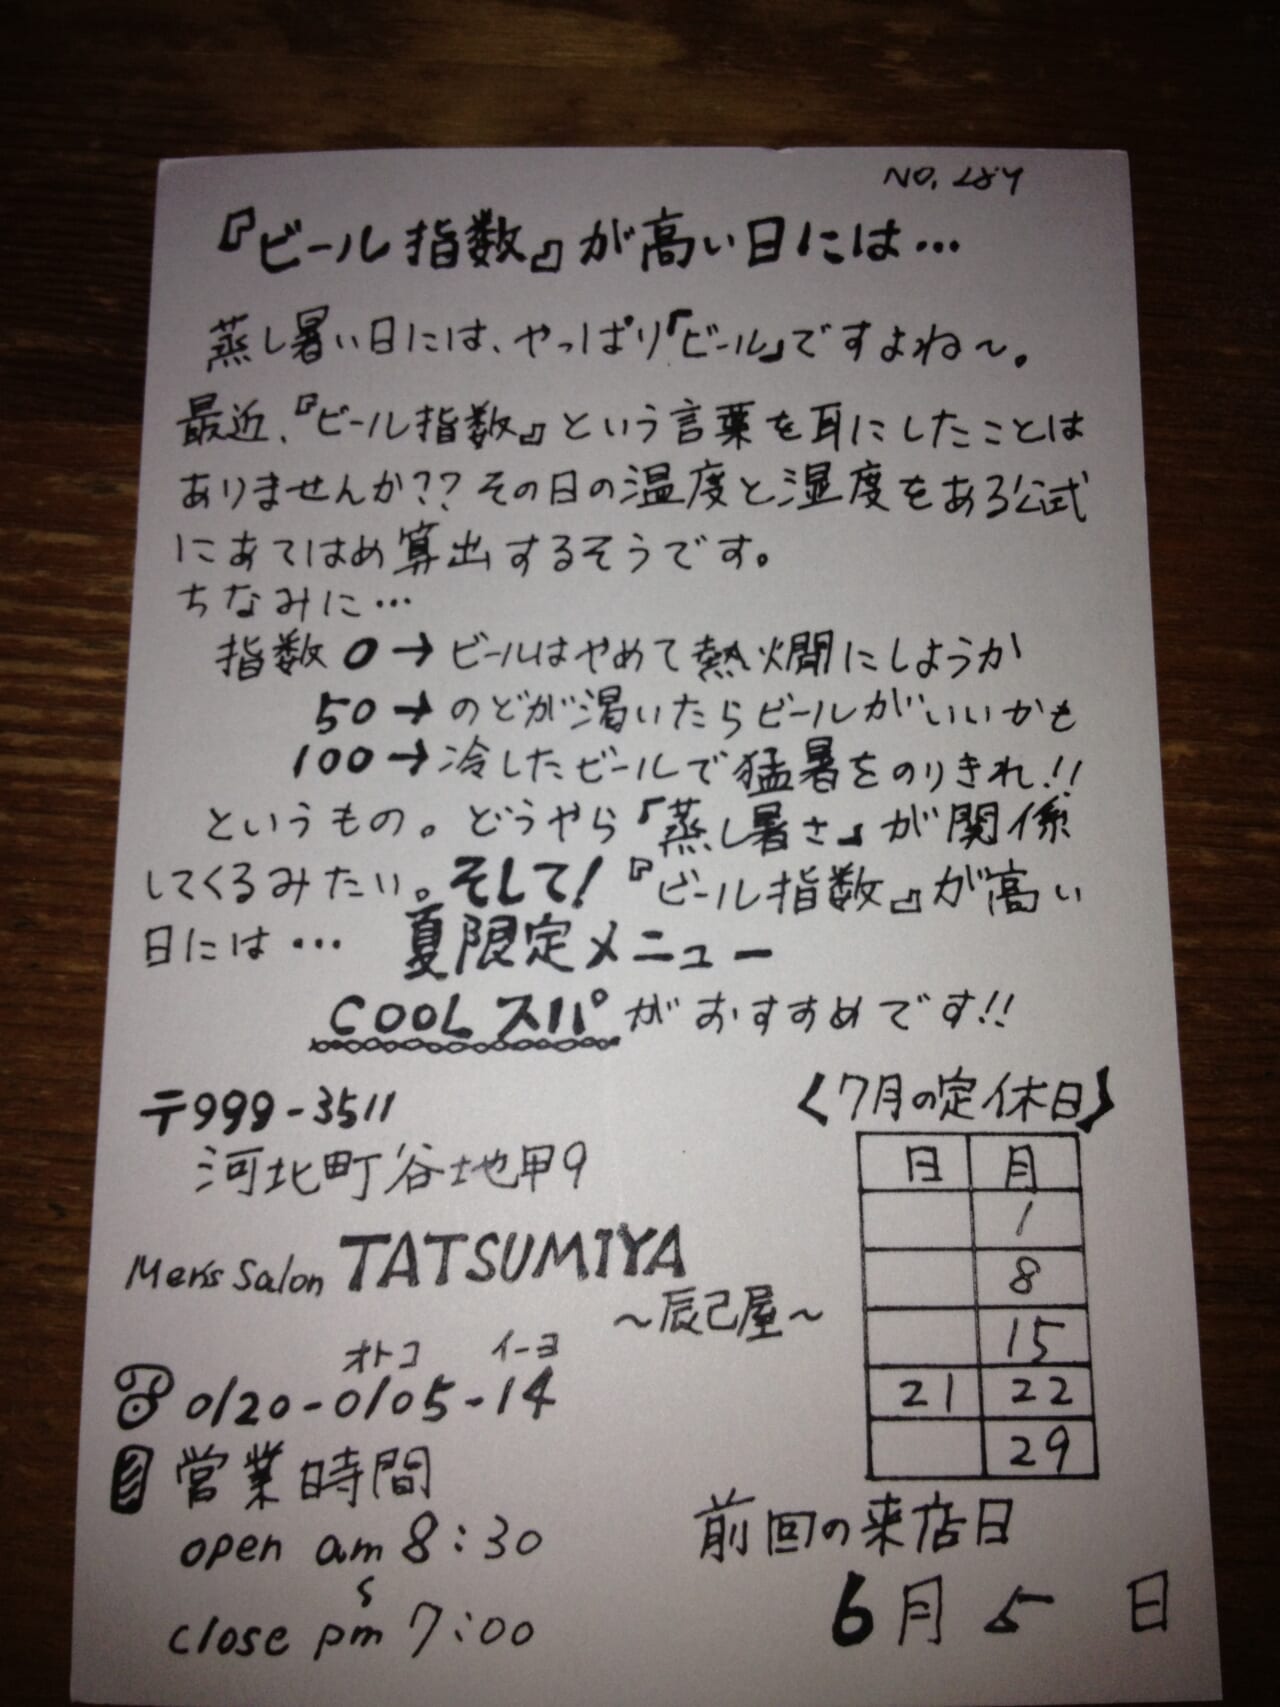 『ビール指数』が高い日には…
蒸し暑い日には、やっぱり『ビール』ですよね～。
最近、『ビール指数』という言葉を耳にしたことは
ありませんか??その日の温度と湿度をある公式
にあてはめ算出するそうです。
ちなみに…
指数0→ビールはやめて熱燗にしようか
50→のどが渇いたらビールがいいかも
100→冷したビールで猛暑をのりきれ!!
というもの。どうやら『蒸し暑さ』が関係
してくるみたい。そして!『ビール指数』が高い
日には… 夏限定メニュー
COOLスパがおすすめです!!
〒999-3511
河北町谷地甲9
Men's Salon TATSUMIYA
～辰己屋～
オトコ イーヨ
0120-0105-14
営業時間
open am 8:30
～
close pm 7:00
〈7月の定休日〉
日 月
1
8
15
21 22
29
前回の来店日
6月5日